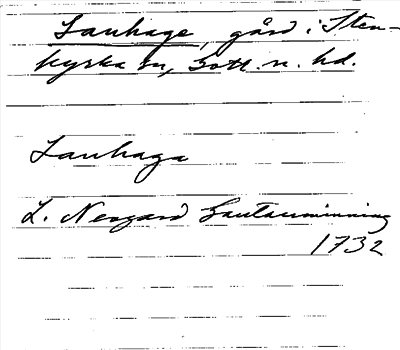 Lauhage, gård i Sten-
kyrka sn, Gotl. n. hd.
Lauhaga
L. Neogard Gautauminning
1732